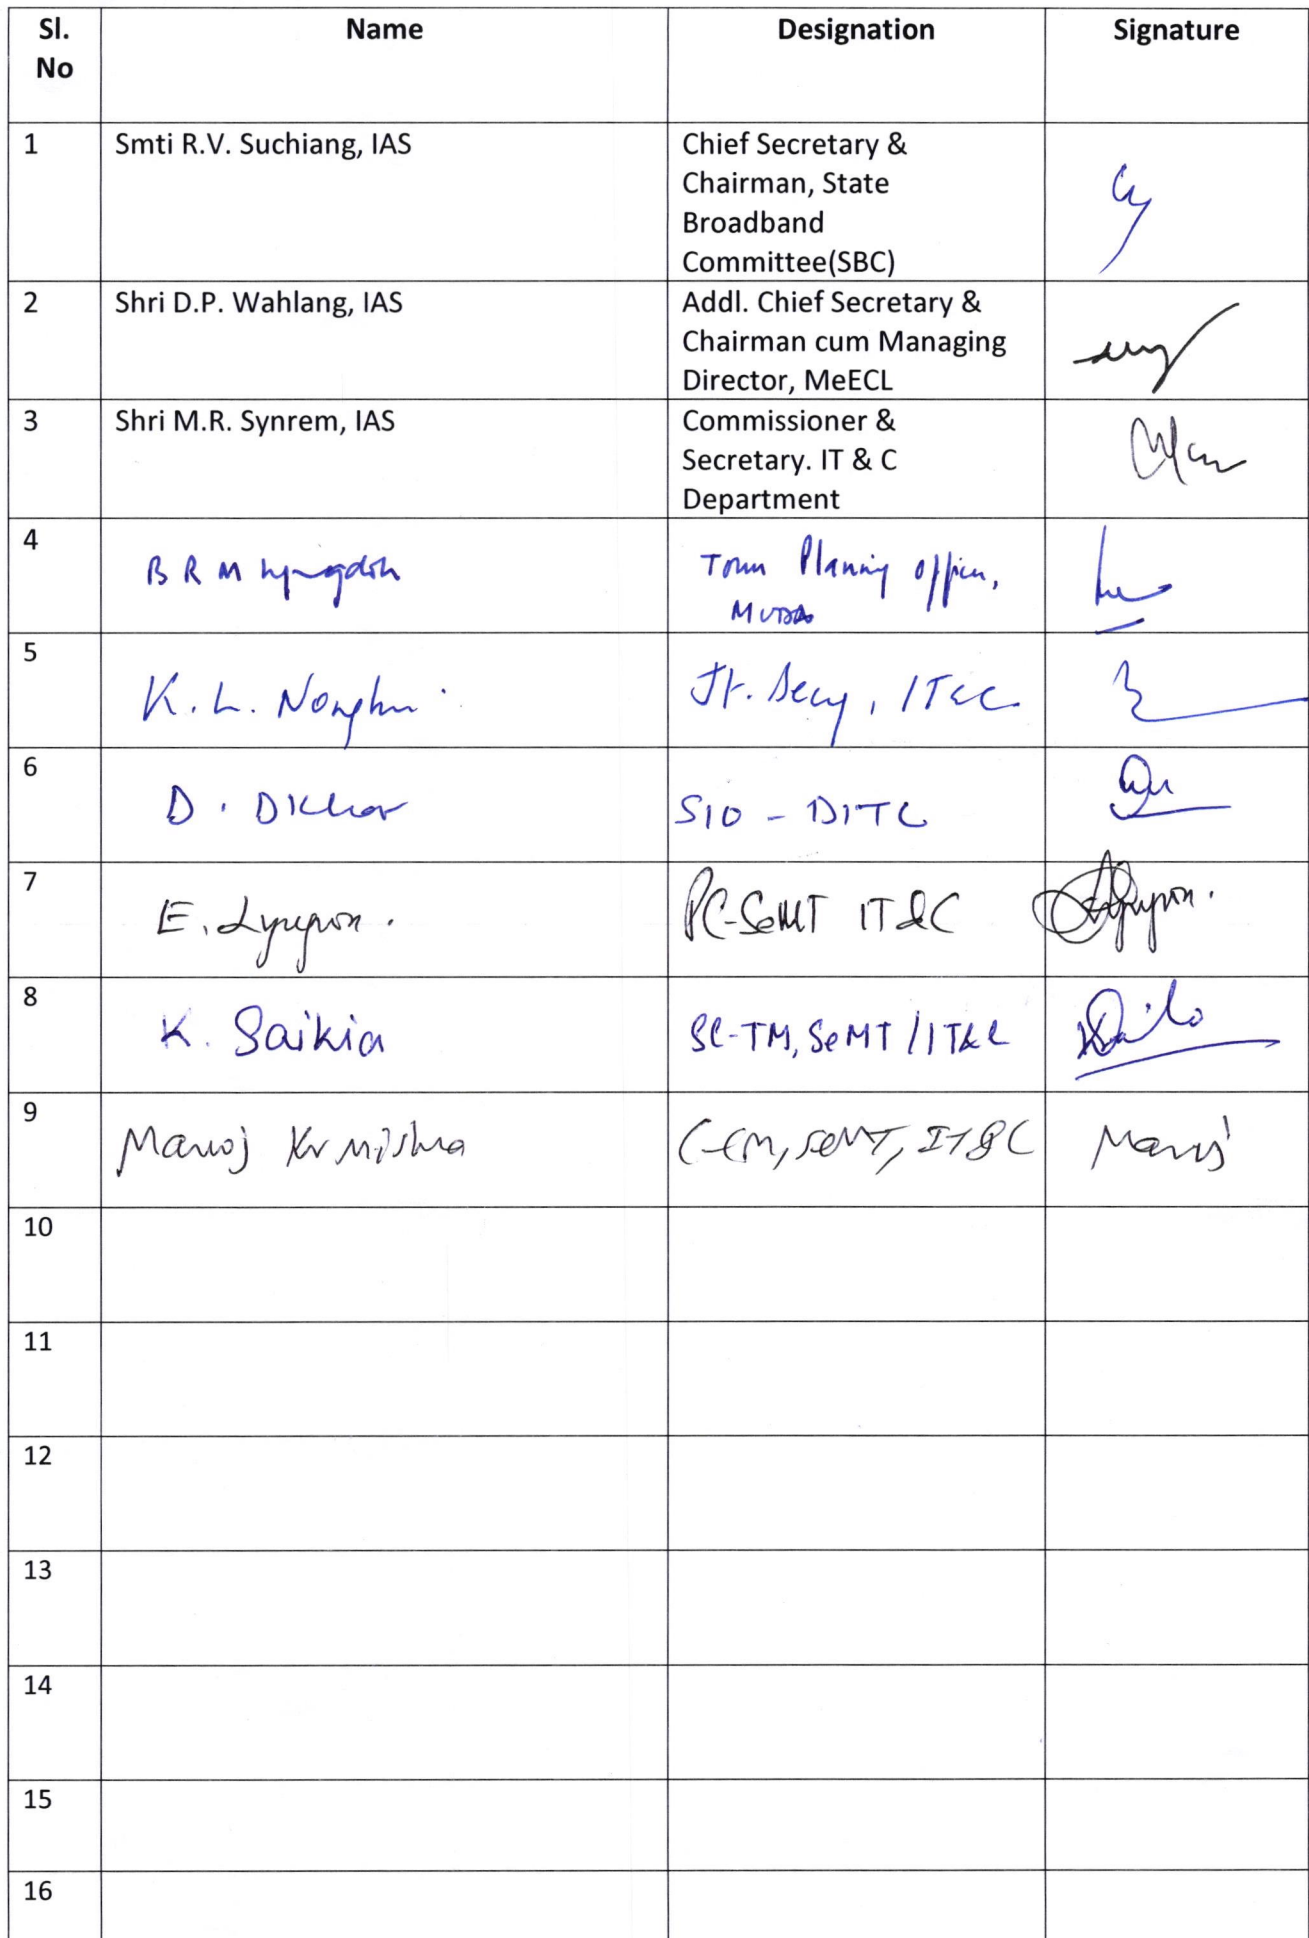 Sl. No Name Designation Signature
1 Smti R.V. Suchiang, IAS Chief Secretary &
Chairman, State
Broadband
Committee(SBC)
2 Shri D.P. Wahlang, IAS Addl. Chief Secretary &
Chairman cum Managing
Director, MeECL
3 Shri M.R. Synrem, IAS Commissioner &
Secretary. IT & C
Department
4 B R M Lyngdoh Town Planning Officer,
MUDA
5 K. L. Jt. Secy, IT&C
6 D. Dkhar SIO - DITC
7 E. PC-SeMT IT&C
8 K. Saikia SC-TM, SeMT / IT&C
9 Manoj Kr Mishra SeMT, IT&C Manoj
10
11
12
13
14
15
16